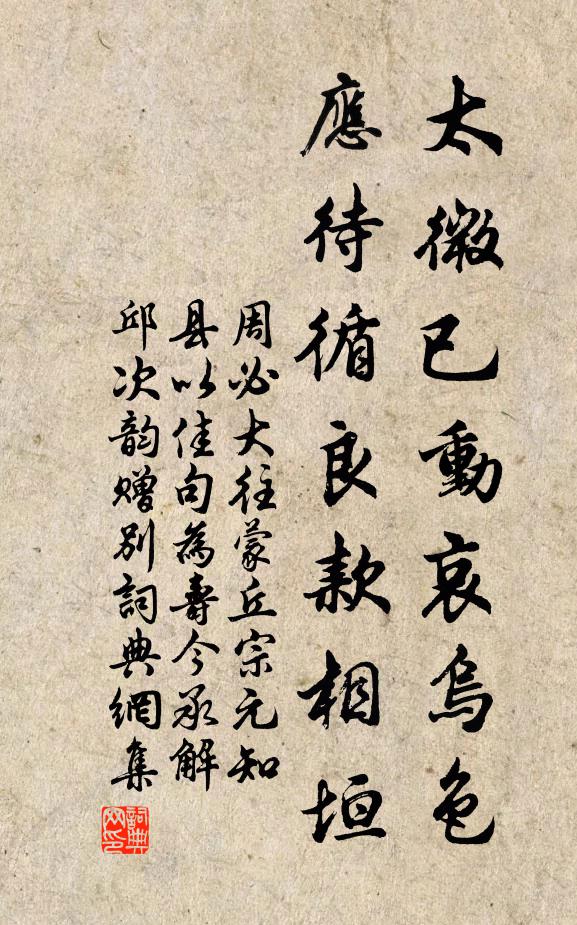 太微已動哀烏色
應待循良款相垣
周必大往蒙丘宗元知
县以佳句為壽今承解
邱次韵赠别詞典網集
詞典网印